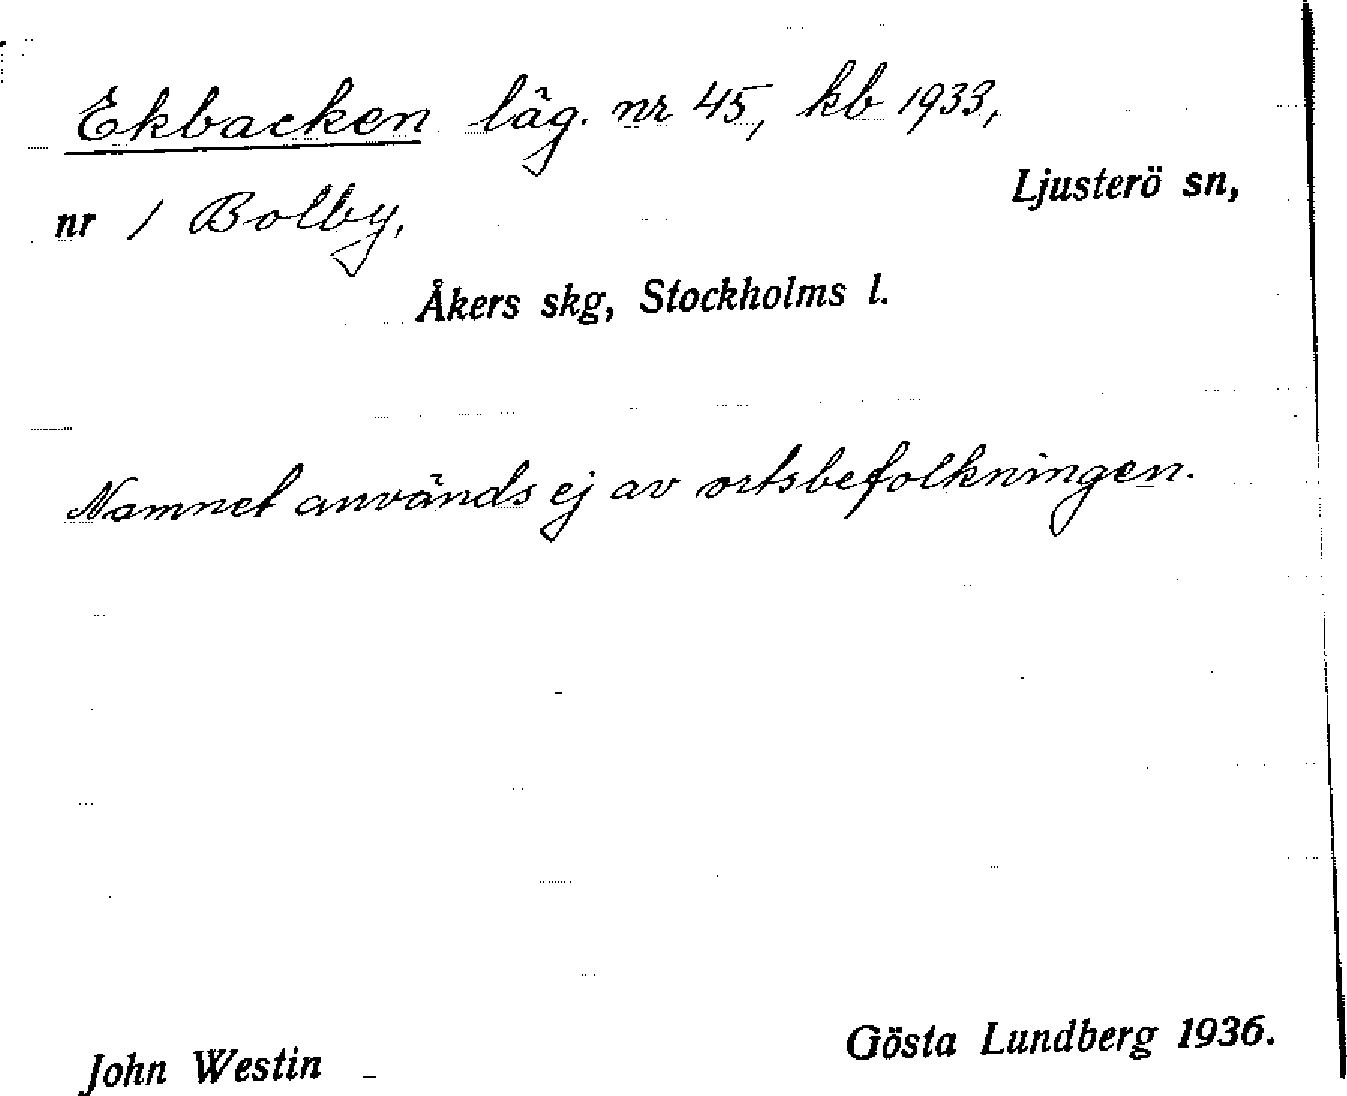 Ekbacken läg. nr 45, kb 1933,
Ljusterö sn,
nr 1 Bolby,
Åkers skg, Stockholms l.
Namnet användes ej av ortsbefolkningen.
John Westin
Gösta Lundberg 1936.